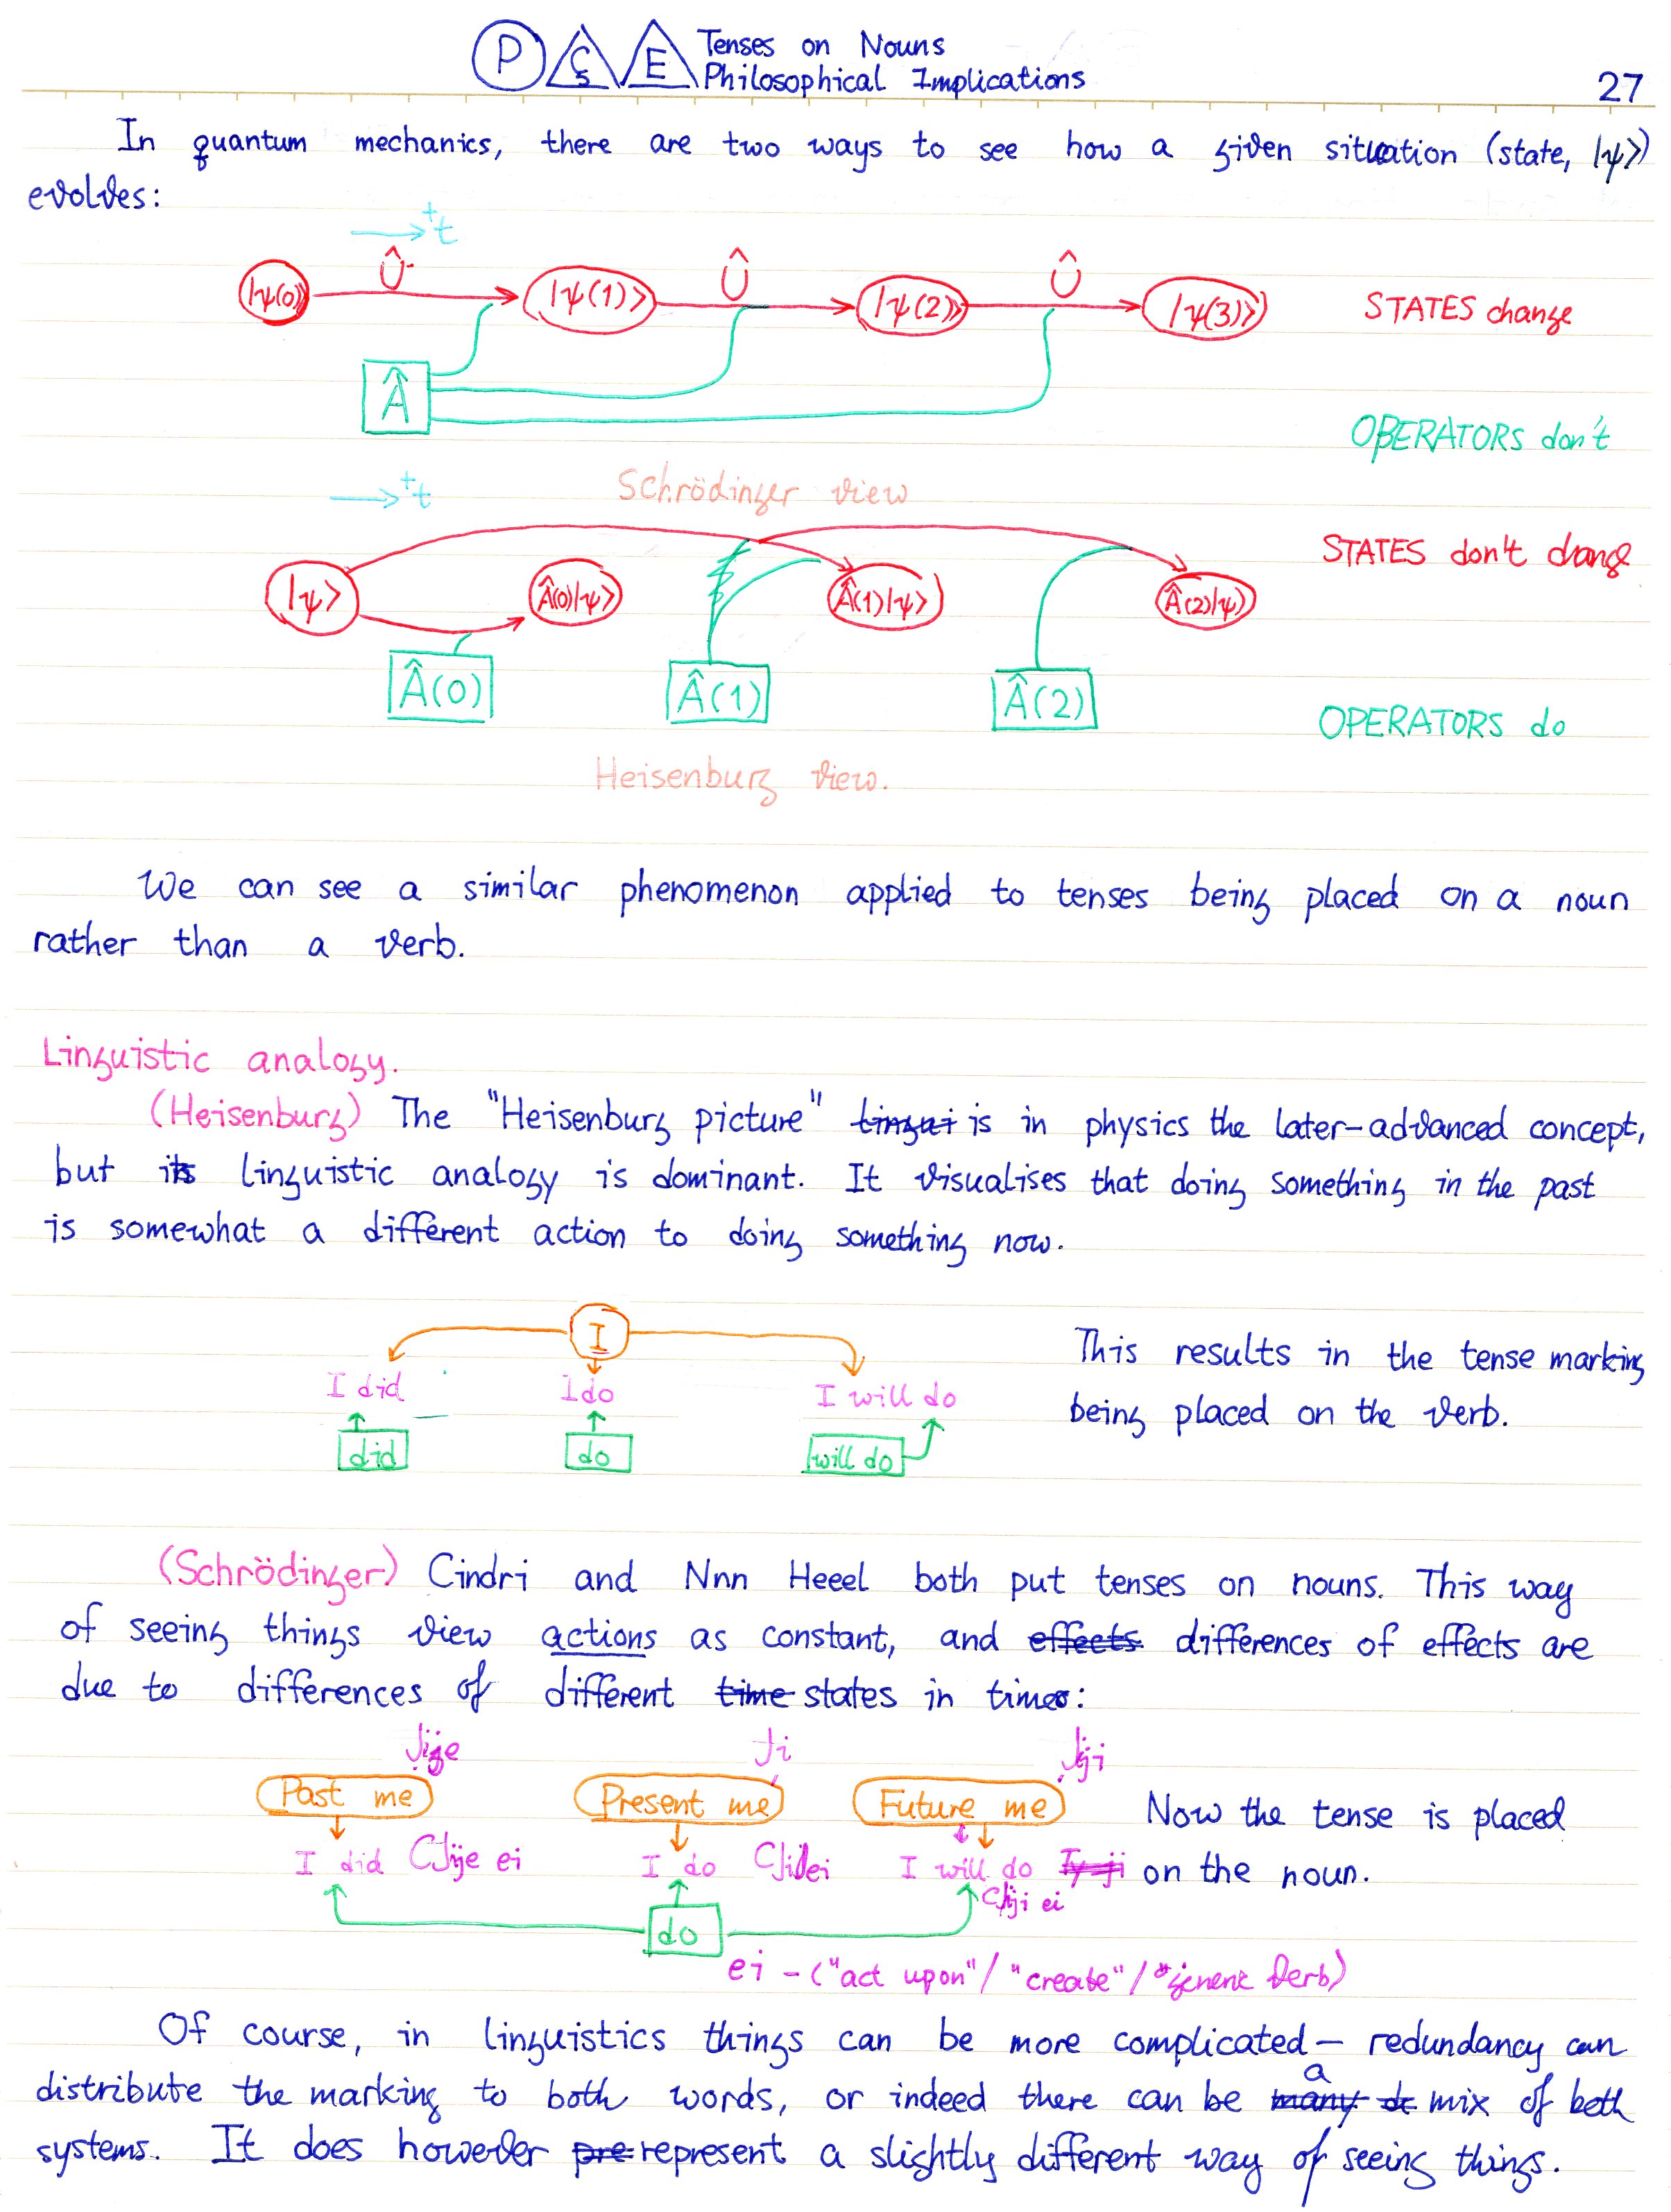 P Ç E Tenses on Nouns
Philosophical Implications
27
In quantum mechanics, there are two ways to see how a given situation (state, |ψ⟩)
evolves:
→ +t
|ψ(0)⟩ Û |ψ(1)⟩ Û |ψ(2)⟩ Û |ψ(3)⟩ STATES change
Â
OPERATORS don't
Schrödinger view
→ +t
STATES don't change
|ψ⟩ Â(0)|ψ⟩ Â(1)|ψ⟩ Â(2)|ψ⟩
Â(0) Â(1) Â(2)
OPERATORS do
Heisenburg view.
We can see a similar phenomenon applied to tenses being placed on a noun
rather than a verb.
Linguistic analogy.
(Heisenburg) The "Heisenburg picture" is in physics the later-advanced concept,
but its linguistic analogy is dominant. It visualises that doing something in the past
is somewhat a different action to doing something now.
I
I did I do I will do
did do will do
This results in the tense marking
being placed on the verb.
(Schrödinger) Cindri and Nnn Heeel both put tenses on nouns. This way
of seeing things view actions as constant, and effects differences of effects are
due to differences of different time states in time:
Ji
Past me Present me Future me
I did ei I do I will do
ei
do
Now the tense is placed
on the noun.
ei - ("act upon"/ "create"/
Of course, in linguistics things can be more complicated – redundancy can
distribute the marking to both words, or indeed there can be a many mix of both
systems. It does however pre represent a slightly different way of seeing things.